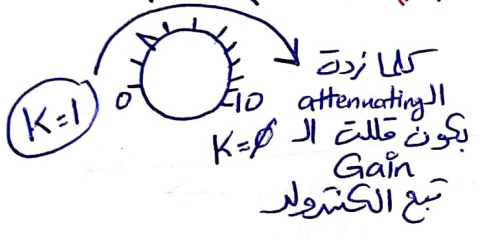 K=1
0
10
K=0
كلما زدة
الـ attenuating
بكون قللت الـ
Gain
تبع الكنترولر